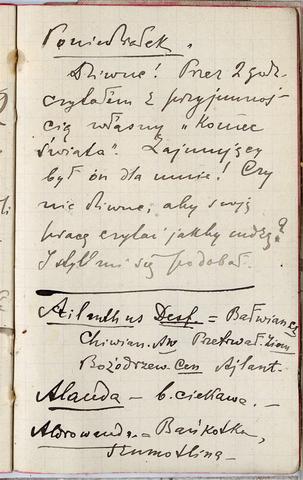 Poniedziałek.
Dziwne! Przez 2 godz.
czytałem z przyjemnoś-
cią własny „Koniec
świata". Zajmujący
był on dla mnie! Czy
nie dziwne, aby swoją
pracę czytać jakby cudzą?
I styl mi się podobał.
Ailanthus Desf = Bałwian
Chiwian. Przetrwał
Bożodrzew Ajlant.
Alauda – b. ciekawa. –
Aldrowand = Bańkotka,